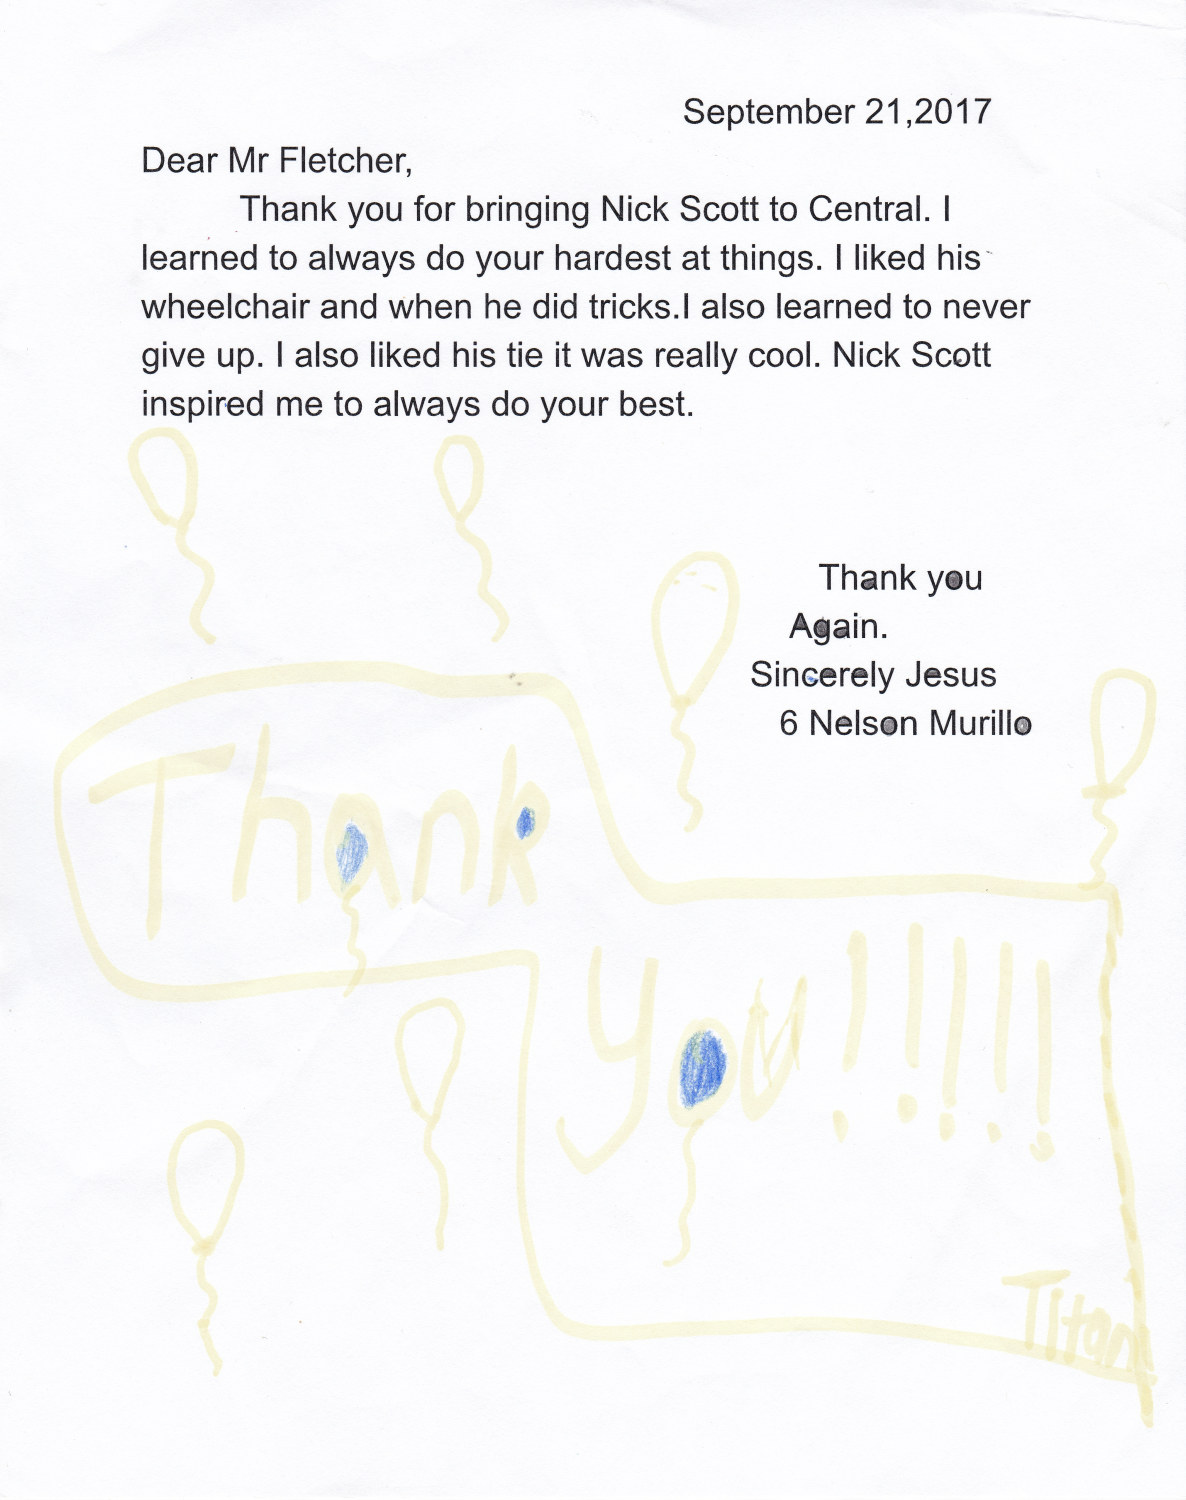 September 21,2017
Dear Mr Fletcher,
Thank you for bringing Nick Scott to Central. I
learned to always do your hardest at things. I liked his
wheelchair and when he did tricks.I also learned to never
give up. I also liked his tie it was really cool. Nick Scott
inspired me to always do your best.
Thank you
Again.
Sincerely Jesus
6 Nelson Murillo
Thank
you!!!!!
Titan